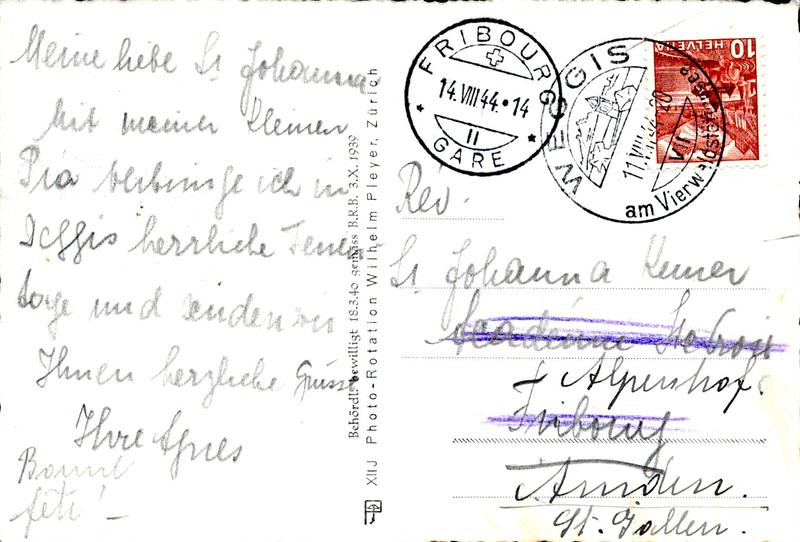 Meine liebe Sr Johanna
Mit meiner kleinen
Pia verbringe ich in
herrliche Ferien
tage und senden wir
Ihnen herzliche Grüsse
Ihre Agnes
Bonne
fête!
Behördl. bewilligt 18.3.40 gemäss B.R.B. 3.X. 1939
XII J Photo-Rotation Wilhelm Pleyer, Zürich
FRIBOURG
14.VIII.44.14
II
GARE
WEGGIS
11.VIII.44. 20
VII
am Vierwaldstättersee
HELVETIA
10
Rév.
Sr Johanna
Académie Ste Croix
Alpenhof.
Fribourg
Amden.
St. Gallen.